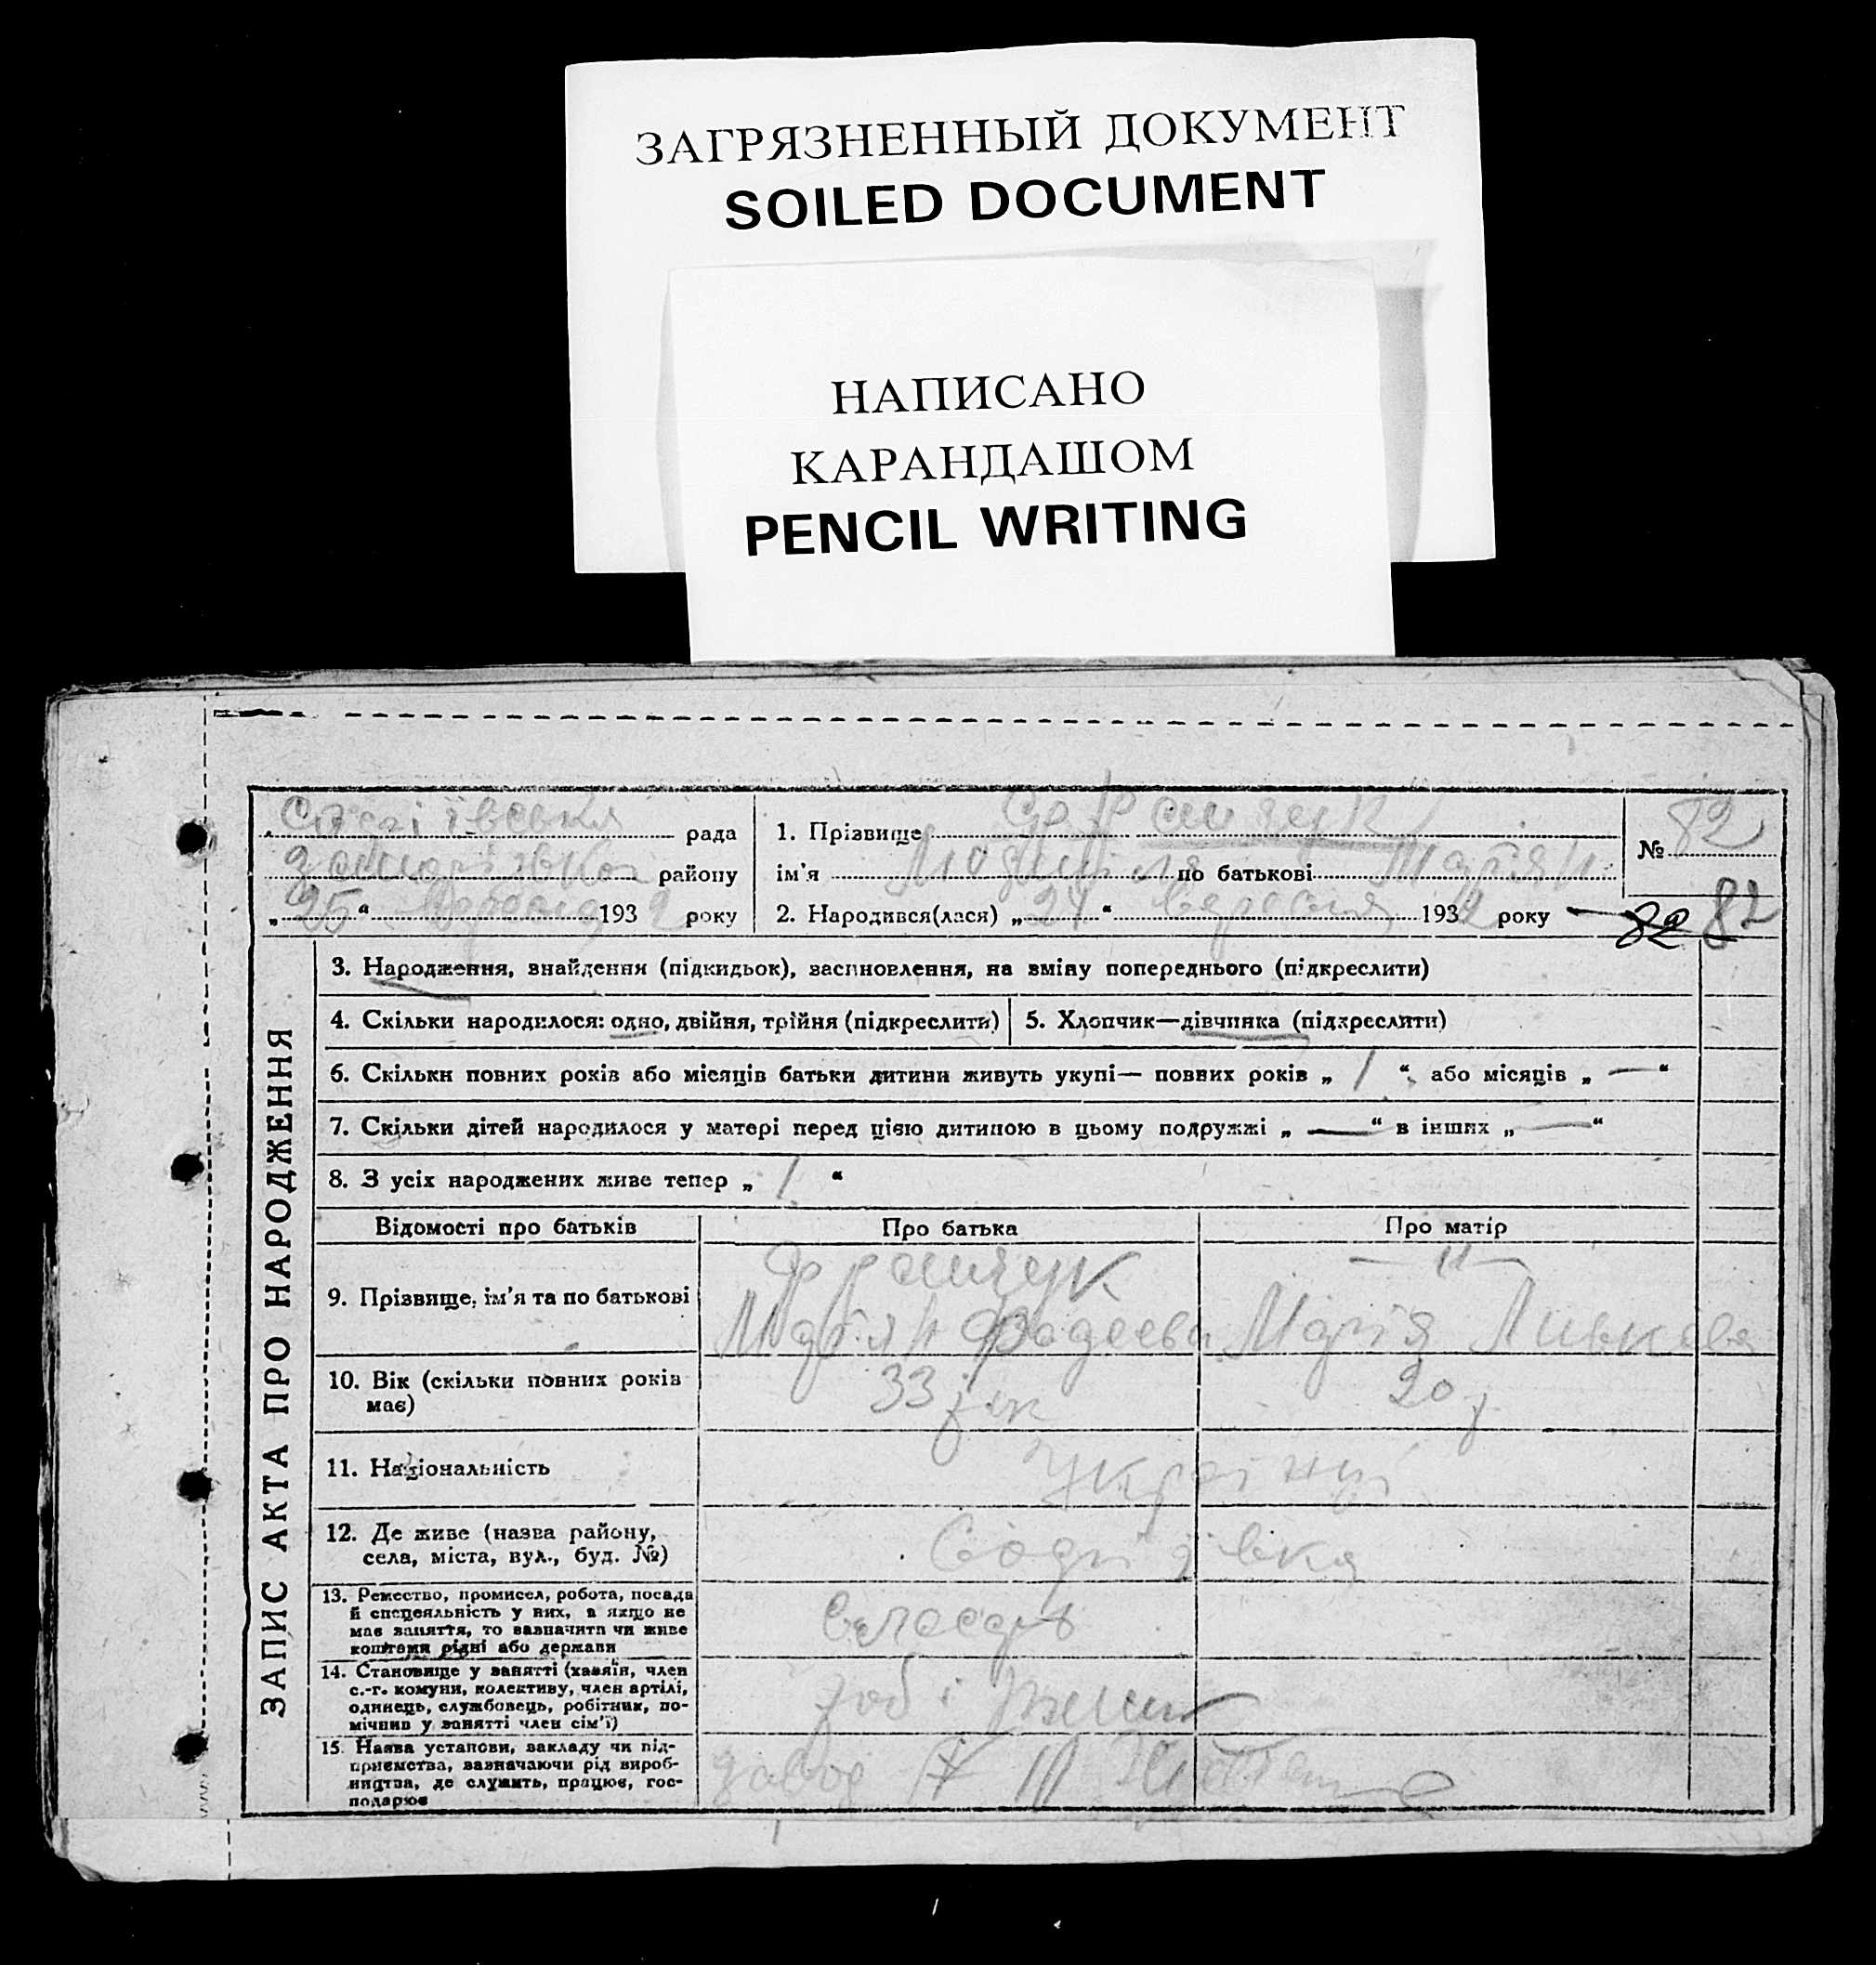 ЗАГРЯЗНЕННЫЙ ДОКУМЕНТ
SOILED DOCUMENT
НАПИСАНО
КАРАНДАШОМ
PENCIL WRITING
рада
району
„ 25 “ 193 2 року
1. Прізвище Франчук
ім’я по батькові
2. Народився(лася) „ 24 “ Вересня 193 2 року
№ 82
82 82
ЗАПИС АКТА ПРО НАРОДЖЕННЯ
3. Народження, знайдення (підкидьок), засиновлення, на зміну попереднього (підкреслити)
4. Скільки народилося: одно, двійня, трійня (підкреслити)
5. Хлопчик—дівчинка (підкреслити)
6. Скільки повних років або місяців батьки дитини живуть укупі— повних років „ 1 “, або місяців „ — “
7. Скільки дітей народилося у матері перед цією дитиною в цьому подружжі „ — “ в інших „ — “
8. З усіх народжених живе тепер „ 1 “
Відомості про батьків
Про батька
Про матір
9. Прізвище, ім’я та по батькові
Франчук
— " —
Марія
10. Вік (скільки повних років
має)
33
20
11. Національність
Українці
12. Де живе (назва району,
села, міста, вул., буд. №)
13. Ремество, промисел, робота, посада
й спецеяльність у них, а якщо не
має заняття, то зазначити чи живе
коштами рідні або держави
14. Становище у занятті (хазяїн, член
с.-г. комуни, колективу, член артілі,
одинець, службовець, робітник, по-
мічник у занятті член сім’ї)
15. Назва установи, закладу чи під-
приємства, зазначаючи рід вироб-
ництва, де служить, працює, гос-
подарює
завод